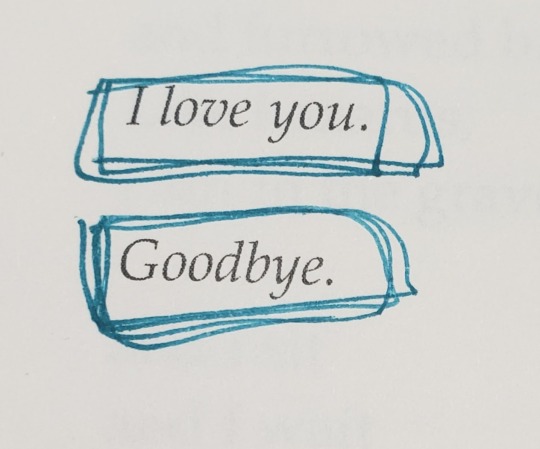 I love you.
Goodbye.